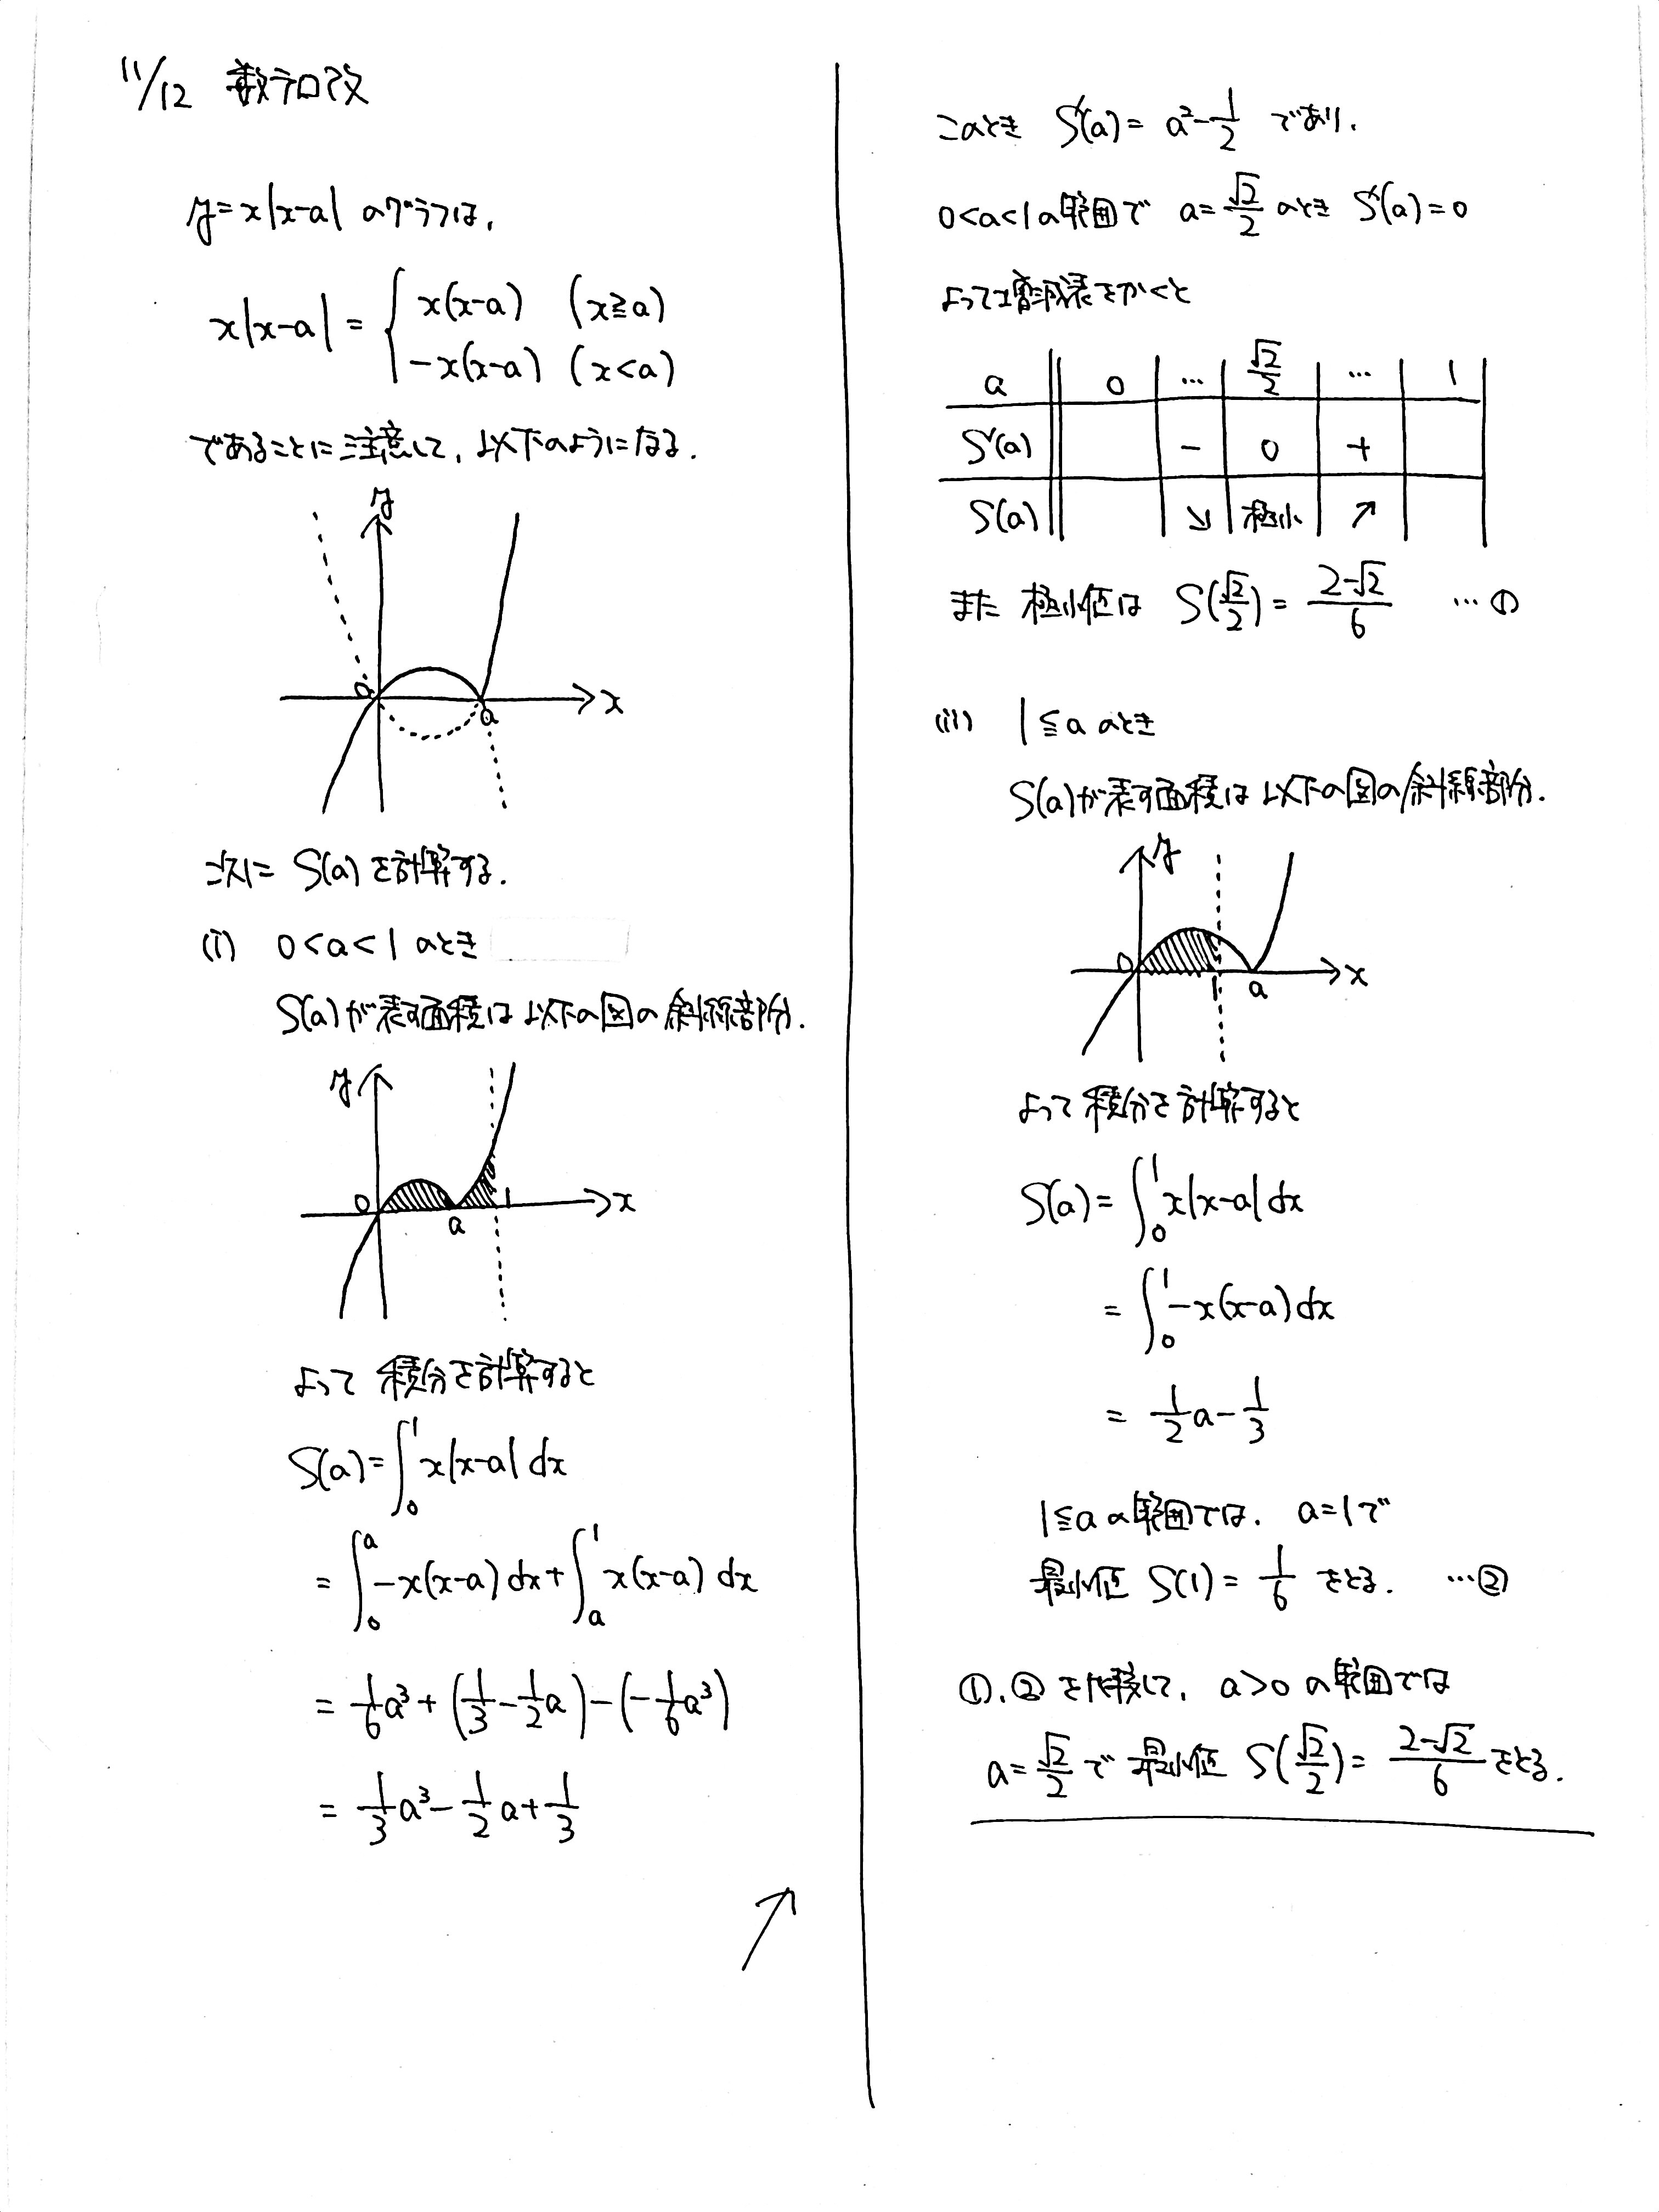 11/12 数テロ改
y=x|x-a| のグラフは,
x|x-a| = { x(x-a) (x≧a)
-x(x-a) (x<a)
であることに注意して, 以下のようになる.
y
O a x
次に S(a) を計算する.
(i) 0<a<1 のとき
S(a)が表す面積は以下の図の斜線部分.
y
O a 1 x
よって 積分を計算すると
S(a)=∫₀¹ x|x-a| dx
= ∫₀ᵃ -x(x-a) dx + ∫ₐ¹ x(x-a) dx
= 1/6 a³ + (1/3 - 1/2 a) - (-1/6 a³)
= 1/3 a³ - 1/2 a + 1/3
このとき S'(a) = a² - 1/2 であり,
0<a<1の範囲で a=√2/2 のとき S'(a)=0
よって増減表をかくと
a 0 … √2/2 … 1
S'(a) - 0 +
S(a) ↘ 極小 ↗
また 極小値は S(√2/2) = (2-√2)/6 …①
(ii) 1≦a のとき
S(a)が表す面積は以下の図の斜線部分.
y
O 1 a x
よって 積分を計算すると
S(a) = ∫₀¹ x|x-a| dx
= ∫₀¹ -x(x-a) dx
= 1/2 a - 1/3
1≦a の範囲では, a=1で
最小値 S(1) = 1/6 をとる. …②
①,②を比較して, a>0 の範囲では
a=√2/2 で 最小値 S(√2/2) = (2-√2)/6 をとる.